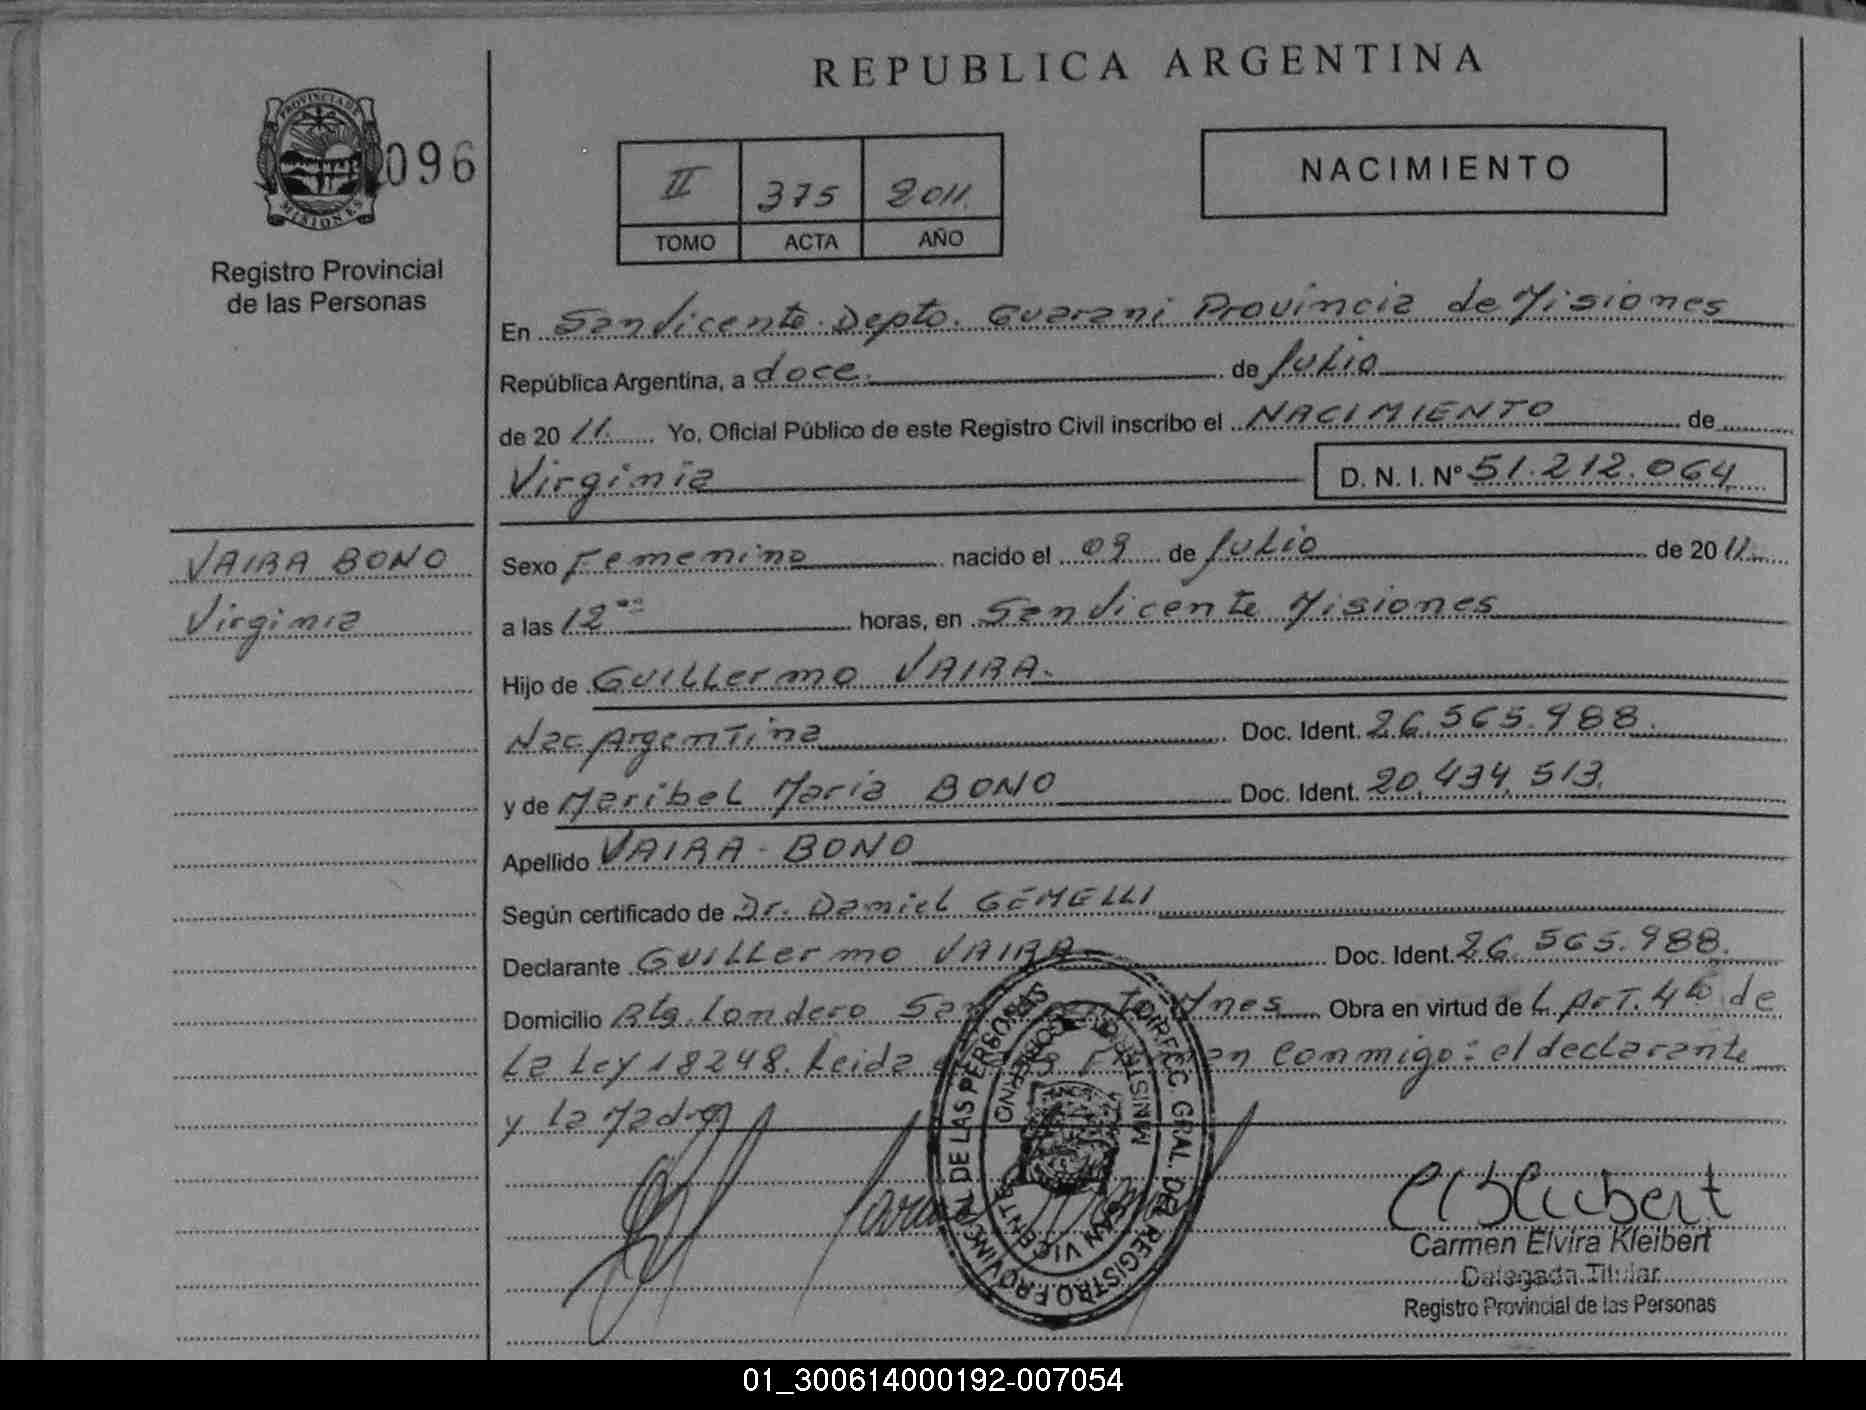 REPUBLICA ARGENTINA
PROVINCIA DE
MISIONES
096
Registro Provincial
de las Personas
II 375 2011.
TOMO ACTA AÑO
NACIMIENTO
En San Vicente. Depto. Guarani Provincia de Misiones
República Argentina, a doce. de Julio
de 2011. Yo, Oficial Público de este Registro Civil inscribo el NACIMIENTO de
Virginia D. N. I. N° 51.212.064
VAIRA BONO
Virginia
Sexo Femenino nacido el 09 de Julio de 2011
a las 12 °° horas, en San Vicente Misiones
Hijo de Guillermo VAIRA.
Nac Argentina Doc. Ident. 26.565.988.
y de Maribel Maria BONO Doc. Ident. 20.434.513.
Apellido VAIRA - BONO
Según certificado de Dr. Daniel GEMELLI
Declarante Guillermo VAIRA Doc. Ident. 26.565.988.
Domicilio Londero Obra en virtud de L. Art. 46 de
La Ley 18248. Leida conmigo: el declarante
y La Madre
DIREC. GRAL. DEL REGISTRO PROVINCIAL DE LAS PERSONAS
MINISTERIO GOBIERNO
SAN VICENTE
Carmen Elvira Kleibert
Delegada Titular
Registro Provincial de las Personas
01_300614000192-007054